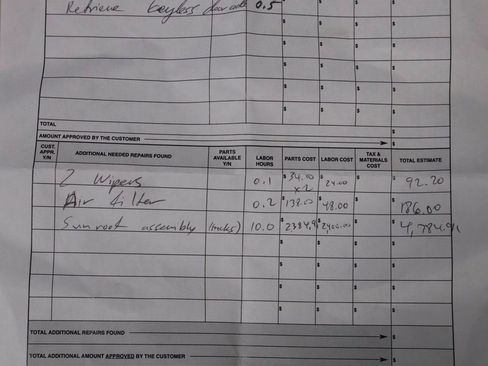 Retrieve keyless door code 0.5
$ $ $
$ $ $
$ $ $
$ $ $
$ $ $
TOTAL $
AMOUNT APPROVED BY THE CUSTOMER $
CUST. APPR. Y/N ADDITIONAL NEEDED REPAIRS FOUND PARTS AVAILABLE Y/N LABOR HOURS PARTS COST LABOR COST TAX & MATERIALS COST TOTAL ESTIMATE
2 Wipers 0.1 $34.00 x2 $24.00 $ 92.20
Air filter 0.2 $138.00 $48.00 $ 186.00
Sunroof assembly 10.0 $2384.91 $2400.00 $ 4,784.91
$ $ $
$ $ $
$ $ $
$ $ $
TOTAL ADDITIONAL REPAIRS FOUND $
TOTAL ADDITIONAL AMOUNT APPROVED BY THE CUSTOMER $